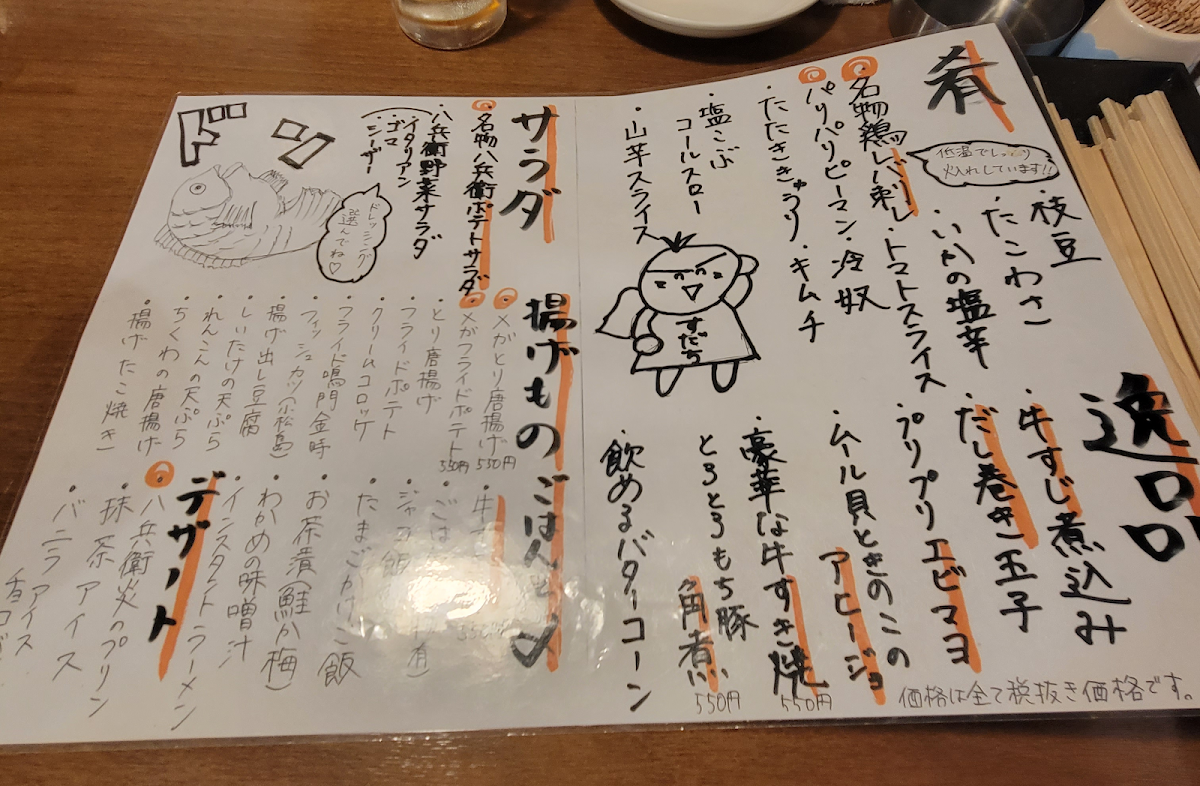 肴
低温でしっとり
火入れしています!!
・名物鶏レバ刺し
・パリパリピーマン
・たたききゅうり
・塩こぶ
コールスロー
・山芋スライス
・枝豆
・たこわさ
・いかの塩辛
・トマトスライス
・冷奴
・キムチ
すだち
逸品
・牛すじ煮込み
・だし巻き玉子
・プリプリエビマヨ
・ムール貝ときのこの
アヒージョ
・豪華な牛すき焼
550円
・とろとろもち豚
角煮
550円
・飲めるバターコーン
価格は全て税抜き価格です。
サラダ
・名物八兵衛ポテトサラダ
・八兵衛野菜サラダ
イタリアン
ゴマ
シーザー
ドレッシング
選んでね♡
ドン
揚げもの
・メガとり唐揚げ
550円
・メガフライドポテト
550円
・とり唐揚げ
・フライドポテト
・クリームコロッケ
・フライド鳴門金時
・フィッシュカツ(小松島)
・揚げ出し豆腐
・しいたけの天ぷら
・れんこんの天ぷら
・ちくわの唐揚げ
・揚げたこ焼き
ごはんと〆
・牛
550円
・ごは
・ジャコ飯
有
・たまごかけご飯
・お茶漬(鮭か梅)
・わかめの味噌汁
・インスタントラーメン
デザート
・八兵衛炎のプリン
・抹茶アイス
・バニラアイス